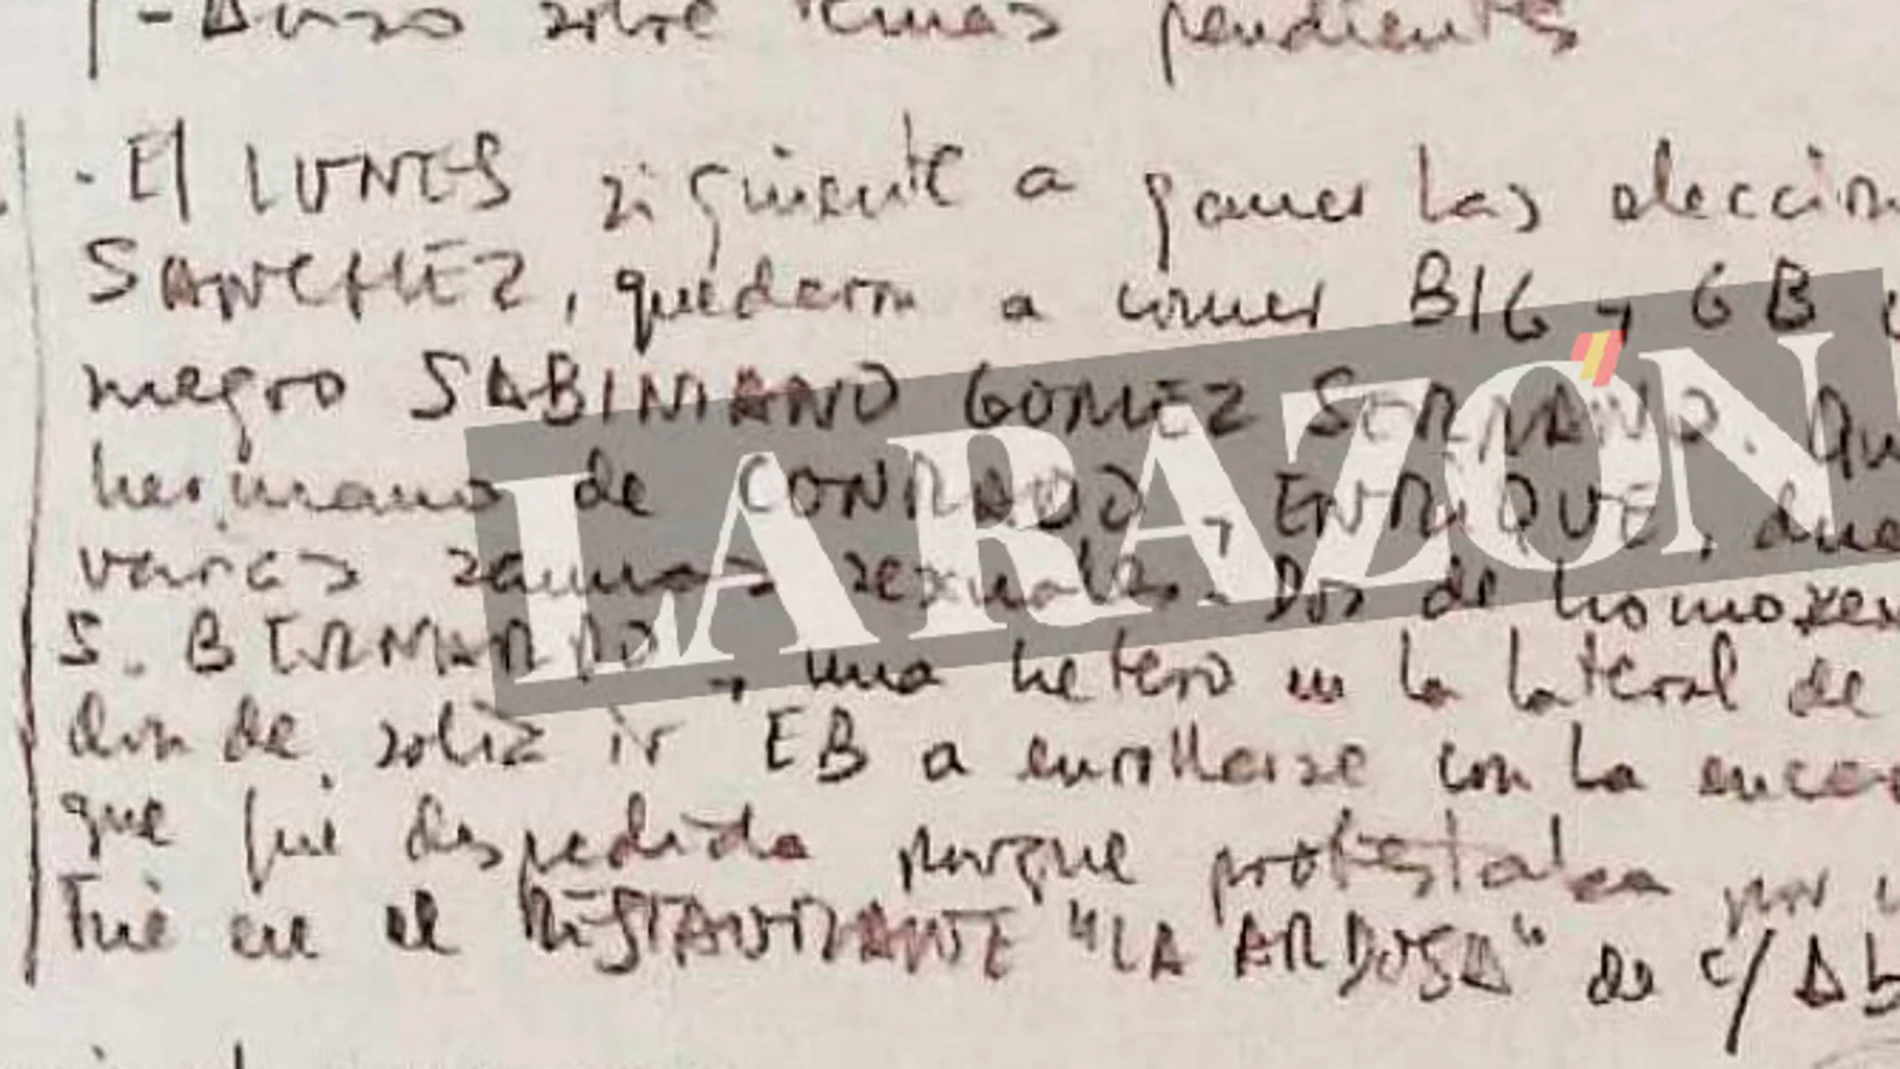 - Buzo sobre temas pendientes
- El LUNES siguiente a ganar las eleccion
SANCHEZ, quedaron a comer BIG y GB
negro SABINIANO GOMEZ SERRANO. Qu
hermano de CONRADO y ENRIQUE, due
varias saunas sexuales. Dos de homosex
S. BERNARDO y una hetero en la lateral de
donde solia ir EB a enrollarse con la enca
que fué despedida porque protestaba por
Fué en el RESTAURANTE "LA ARDOSA" de c/
LA RAZÓN